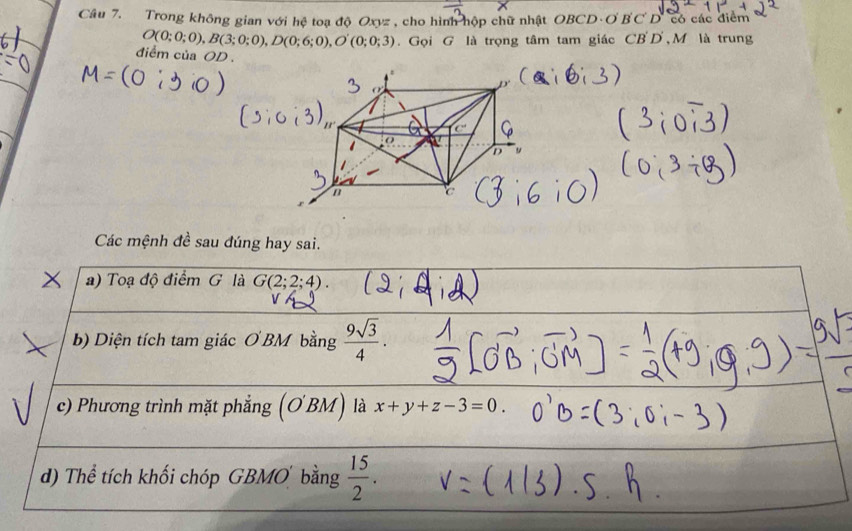 Câu 7. Trong không gian với hệ toạ độ Oxyz, cho hình hộp chữ nhật OBCD·O'B'C'D' có các điểm
O(0;0;0), B(3;0;0), D(0;6;0), O'(0;0;3). Gọi G là trọng tâm tam giác CB'D', M là trung
điểm của OD.
M=(0;3;0)
3
O'
D'
(0;6;3)
(3;0;3)
B'
G
C'
6
(3;0;3)
O
D
y
(0;3;-3)
3
B
C
(3;6;0)
x
Các mệnh đề sau đúng hay sai.
X a) Toạ độ điểm G là G(2;2;4). (2;4;2)
X b) Diện tích tam giác O'BM bằng 9√3/4. 1/2 [O'B;O'M] = 1/2 (+9;9;9) = 9√3/2
V c) Phương trình mặt phẳng (O'BM) là x+y+z-3=0. O'B=(3;0;-3)
d) Thể tích khối chóp GBMO' bằng 15/2. V=(1/3).S.h.